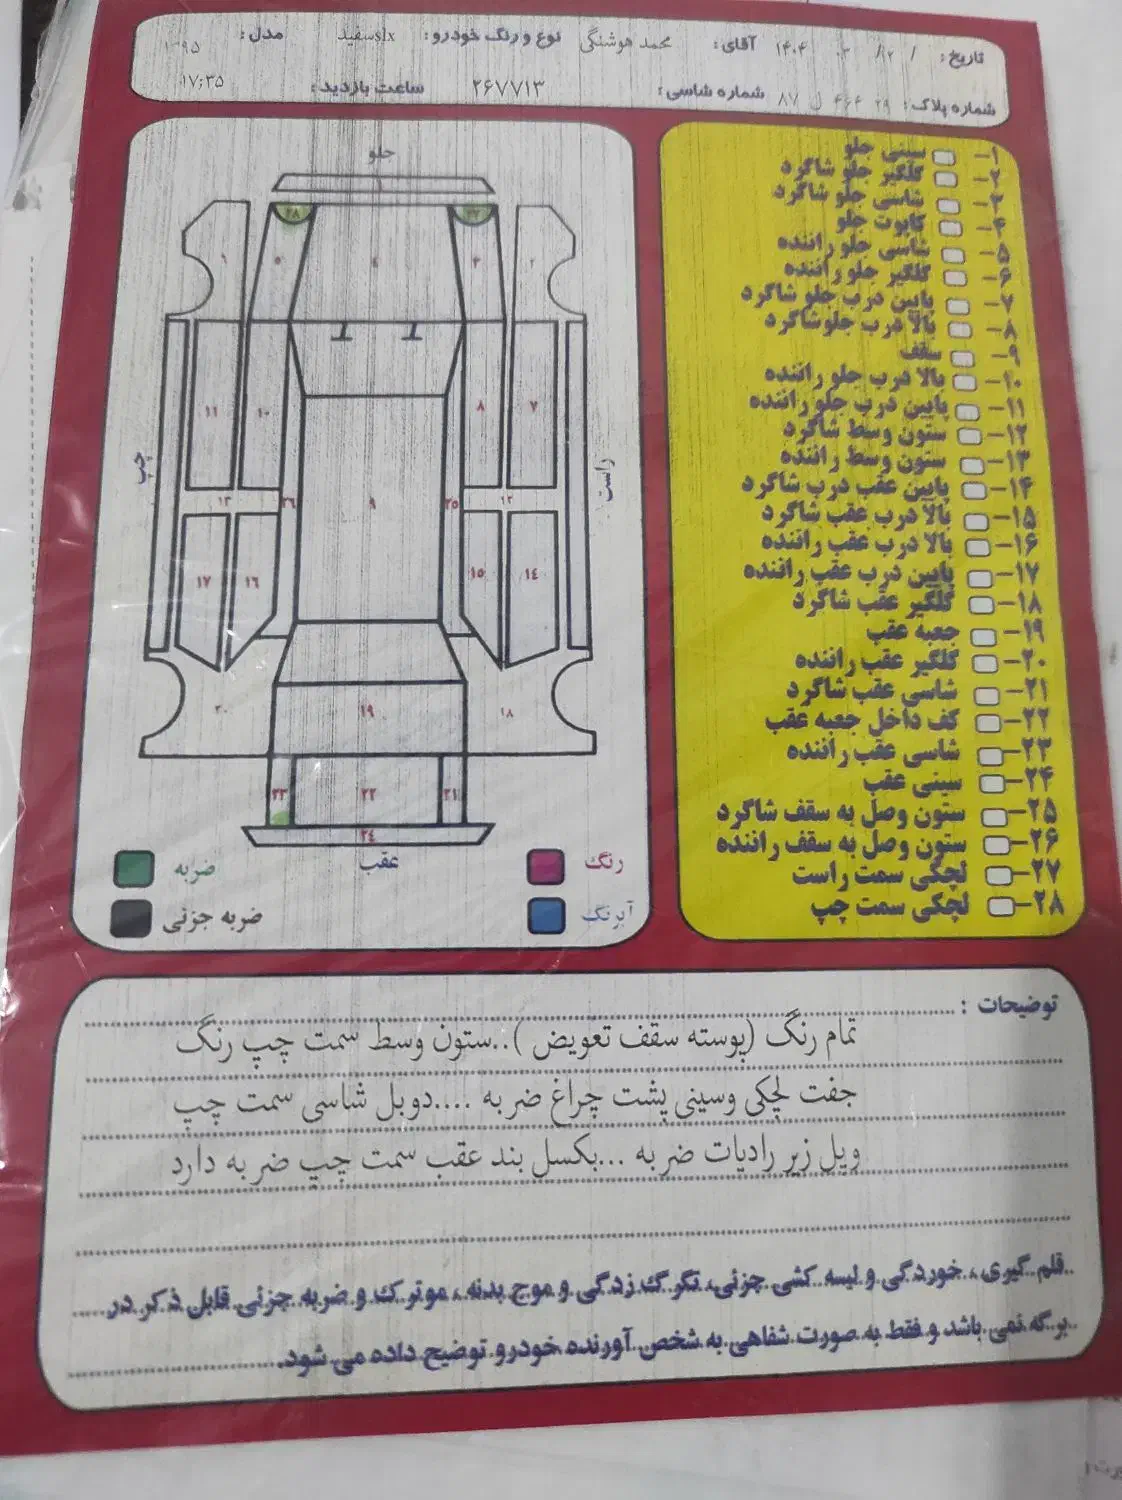 تاریخ: / ۸۲ ۰۳ ۱۴۰۴ آقای: محمد هوشنگی نوع و رنگ خودرو: slxسفید مدل: ۱۳۹۵
شماره پلاک: ۲۹ ۴۶۴ ل ۸۷ شماره شاسی: ۲۶۷۷۱۳ ساعت بازدید: ۱۷:۳۵
۱- سینی جلو
۲- گلگیر جلو شاگرد
۳- شاسی جلو شاگرد
۴- کاپوت جلو
۵- شاسی جلو راننده
۶- گلگیر جلو راننده
۷- پایین درب جلو شاگرد
۸- بالا درب جلوشاگرد
۹- سقف
۱۰- بالا درب جلو راننده
۱۱- پایین درب جلو راننده
۱۲- ستون وسط شاگرد
۱۳- ستون وسط راننده
۱۴- پایین عقب درب شاگرد
۱۵- بالا درب عقب شاگرد
۱۶- بالا درب عقب راننده
۱۷- پایین درب عقب راننده
۱۸- گلگیر عقب شاگرد
۱۹- جعبه عقب
۲۰- گلگیر عقب راننده
۲۱- شاسی عقب شاگرد
۲۲- کف داخل جعبه عقب
۲۳- شاسی عقب راننده
۲۴- سینی عقب
۲۵- ستون وصل به سقف شاگرد
۲۶- ستون وصل به سقف راننده
۲۷- لچکی سمت راست
۲۸- لچکی سمت چپ
جلو
۲۸
۵ ۳
۱۱ ۱۰ ۸ ۷
چپ راست
۱۳ ۲۶ ۹ ۲۵ ۱۲
۱۷ ۱۶ ۱۵ ۱۴
۲۰ ۱۹ ۱۸
۲۳ ۲۲ ۲۱
۲٤
عقب
رنگ ضربه
آبرنگ ضربه جزئی
توضیحات :
تمام رنگ (پوسته سقف تعویض )..ستون وسط سمت چپ رنگ
جفت لچکی وسینی پشت چراغ ضربه ....دوبل شاسی سمت چپ
ویل زیر رادیات ضربه ...بکسل بند عقب سمت چپ ضربه دارد
قلم گیری، خوردگی و لیسه کشی جزئی، تگرگ زدگی و موج بدنه، موترک و ضربه جزئی قابل ذکر در
برگه نمی باشد و فقط به صورت شفاهی به شخص آورنده خودرو توضیح داده می شود.